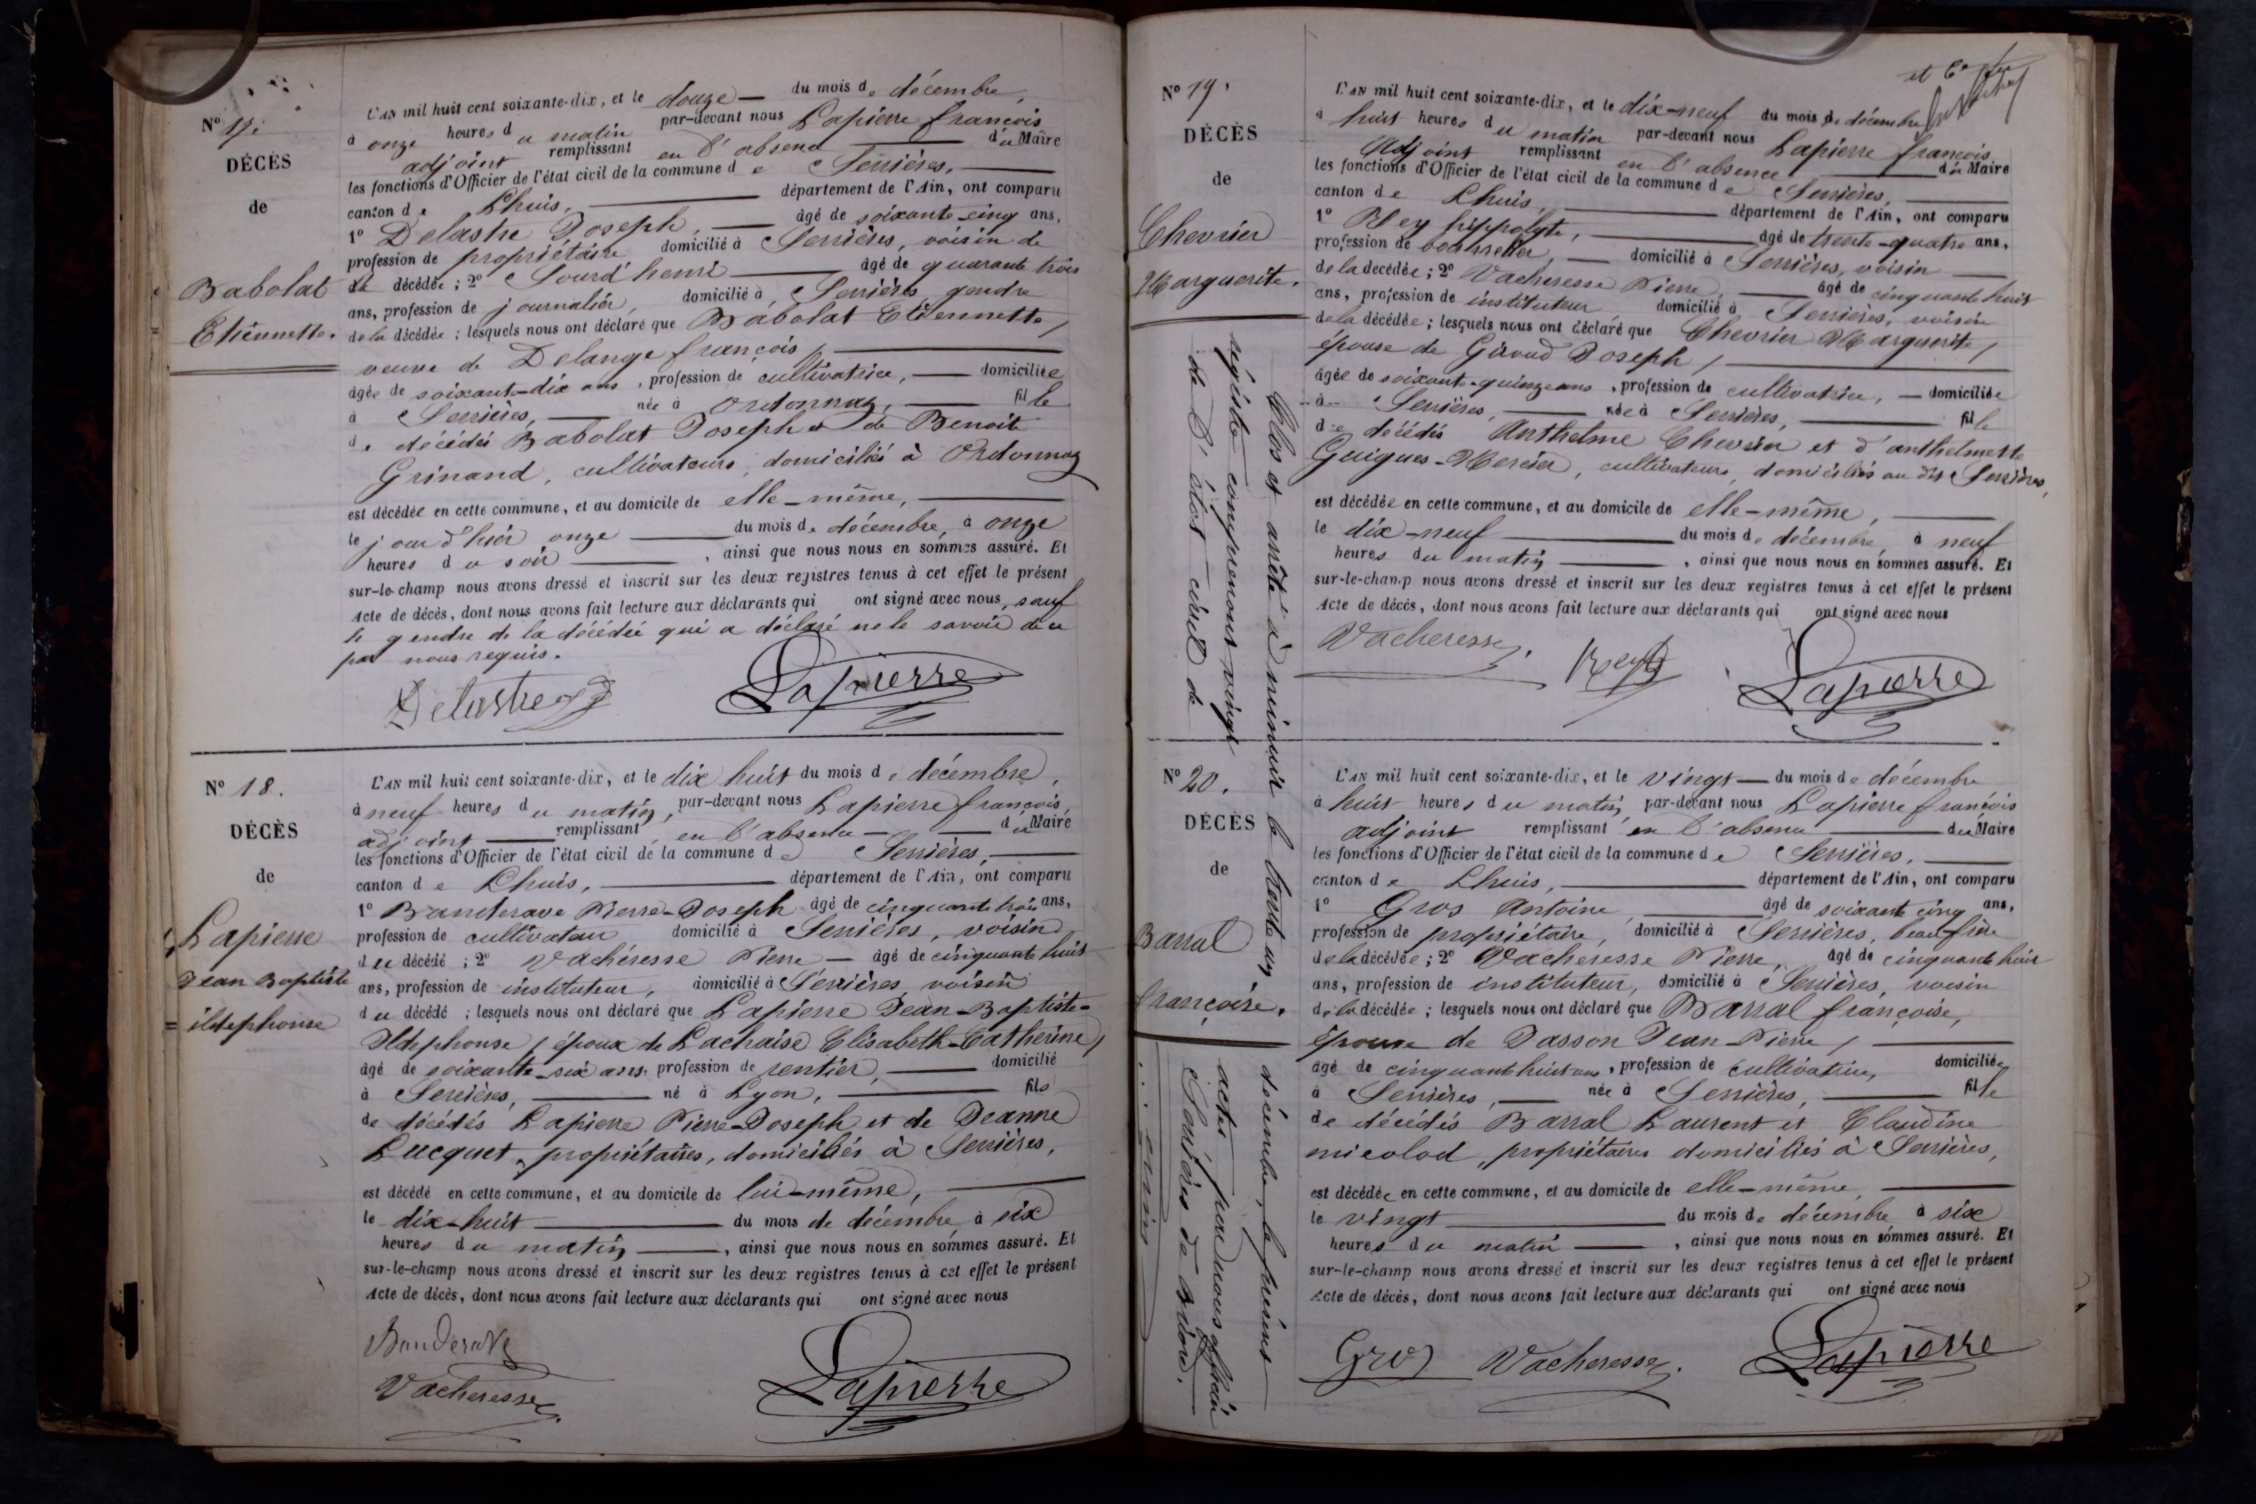 N° 17.
DÉCÈS
de
Babolat
Etiennette.
L'AN mil huit cent soixante-dix, et le douze — du mois de décembre,
à onze heures du matin par-devant nous Lapierre françois
adjoint remplissant en l'absence du Maire
les fonctions d'Officier de l'état civil de la commune de Serrières,
canton de Lhuis, département de l'Ain, ont comparu
1° Delastre Joseph, âgé de soixante-cinq ans,
profession de propriétaire domicilié à Serrières, voisin de
la décédée ; 2° Sourd henri âgé de quarante trois
ans, profession de journalier, domicilié à Serrières gendre
de la décédée ; lesquels nous ont déclaré que Babolat Etiennette,
veuve de Delange françois,
âgée de soixante-dix ans, profession de cultivatrice, domiciliée
à Serrières, née à Ordonnaz, fille
de décédés Babolat Joseph et de Benoite
Grinand, cultivateurs, domiciliés à Ordonnaz
est décédée en cette commune, et au domicile de elle-même,
le jour d'hier onze du mois de décembre, à onze
heures du soir, ainsi que nous nous en sommes assuré. Et
sur-le-champ nous avons dressé et inscrit sur les deux registres tenus à cet effet le présent
Acte de décès, dont nous avons fait lecture aux déclarants qui ont signé avec nous, sauf
le gendre de la décédée qui a déclaré ne le savoir de ce
par nous requis.
Delastre Lapierre
N° 18.
DÉCÈS
de
Lapierre
Jean Baptiste
ildephonse
L'AN mil huit cent soixante-dix, et le dix huit du mois de décembre,
à neuf heures du matin, par-devant nous Lapierre françois,
adjoint remplissant en l'absence du Maire
les fonctions d'Officier de l'état civil de la commune de Serrières,
canton de Lhuis, département de l'Ain, ont comparu
1° Banderave Pierre-Joseph âgé de cinquante trois ans,
profession de cultivateur domicilié à Serrières, voisin
du décédé ; 2° Vacheresse Pierre — âgé de cinquante huit
ans, profession de instituteur, domicilié à Serrières voisin
du décédé ; lesquels nous ont déclaré que Lapierre Jean-Baptiste-
Ildephonse, époux de Lachaise Elisabeth-Catherine,
âgé de soixante-six ans, profession de rentier, domicilié
à Serrières, né à Lyon, fils
de décédés Lapierre Pierre-Joseph et de Jeanne
Lucquet, propriétaires, domiciliés à Serrières,
est décédé en cette commune, et au domicile de lui-même,
le dix-huit du mois de décembre à six
heures du matin, ainsi que nous nous en sommes assuré. Et
sur-le-champ nous avons dressé et inscrit sur les deux registres tenus à cet effet le présent
Acte de décès, dont nous avons fait lecture aux déclarants qui ont signé avec nous
Banderave
Vacheresse Lapierre
et
N° 19.
DÉCÈS
de
Chevrier
Marguerite.
L'AN mil huit cent soixante-dix, et le dix-neuf du mois de décembre
à huit heures du matin par-devant nous Lapierre françois
Adjoint remplissant en l'absence du Maire
les fonctions d'Officier de l'état civil de la commune de Serrières,
canton de Lhuis, département de l'Ain, ont comparu
1° Rey hippolyte, âgé de trente-quatre ans,
profession de bourrelier, domicilié à Serrières, voisin
de la décédée ; 2° Vacheresse Pierre, âgé de cinquante huit
ans, profession de instituteur domicilié à Serrières, voisin
de la décédée ; lesquels nous ont déclaré que Chevrier Marguerite,
épouse de Giroud Joseph,
âgée de soixante-quinze ans, profession de cultivatrice, — domiciliée
à Serrières, née à Serrières, fille
de décédés Anthelme Chevrier et d'anthelmette
Guigues-Mercier, cultivateurs, domiciliés au dit Serrières,
est décédée en cette commune, et au domicile de elle-même,
le dix-neuf du mois de décembre, à neuf
heures du matin, ainsi que nous nous en sommes assuré. Et
sur-le-champ nous avons dressé et inscrit sur les deux registres tenus à cet effet le présent
Acte de décès, dont nous avons fait lecture aux déclarants qui ont signé avec nous
Vacheresse. Rey Lapierre
N° 20.
DÉCÈS
de
Barral
françoise.
L'AN mil huit cent soixante-dix, et le vingt — du mois de décembre
à huit heures du matin, par-devant nous Lapierre françois
adjoint remplissant en l'absence du Maire
les fonctions d'Officier de l'état civil de la commune de Serrières,
canton de Lhuis, département de l'Ain, ont comparu
1° Gros Antoine, âgé de soixante cinq ans,
profession de propriétaire, domicilié à Serrières, beau frère
de la décédée ; 2° Vacheresse Pierre, âgé de cinquante huit
ans, profession de instituteur, domicilié à Serrières, voisin
de la décédée ; lesquels nous ont déclaré que Barral françoise,
épouse de Jasson Jean-Pierre,
âgé de cinquante huit ans, profession de cultivatrice, domiciliée
à Serrières, née à Serrières, fille
de décédés Barral Laurent et Claudine
micolod, propriétaires domiciliés à Serrières,
est décédée en cette commune, et au domicile de elle-même,
le vingt du mois de décembre à six
heures du matin, ainsi que nous nous en sommes assuré. Et
sur-le-champ nous avons dressé et inscrit sur les deux registres tenus à cet effet le présent
Acte de décès, dont nous avons fait lecture aux déclarants qui ont signé avec nous
Gros Vacheresse. Lapierre
Clos et arrêté à minuit le trente un décembre, le présent
registre comprenant vingt actes par nous officier
de l'état civil de Serrières de Briord.